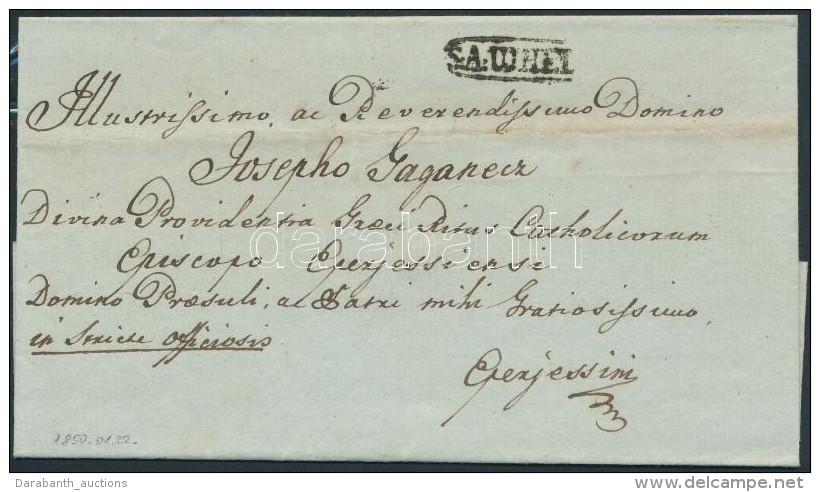 S.A.UJHEL
Illustrissimo, ac Reverendissimo Domino
Josepho Gaganecz
Divina Providentia Græci Ritus Catholicorum
Episcopo Eperjessiensi
darabanth
Domino Præsuli, ac Patri mihi Gratiosissimo
in Stricte Officiosis
Eperjessini
1850.01.22.
Darabanth_auctions
www.delcampe.net